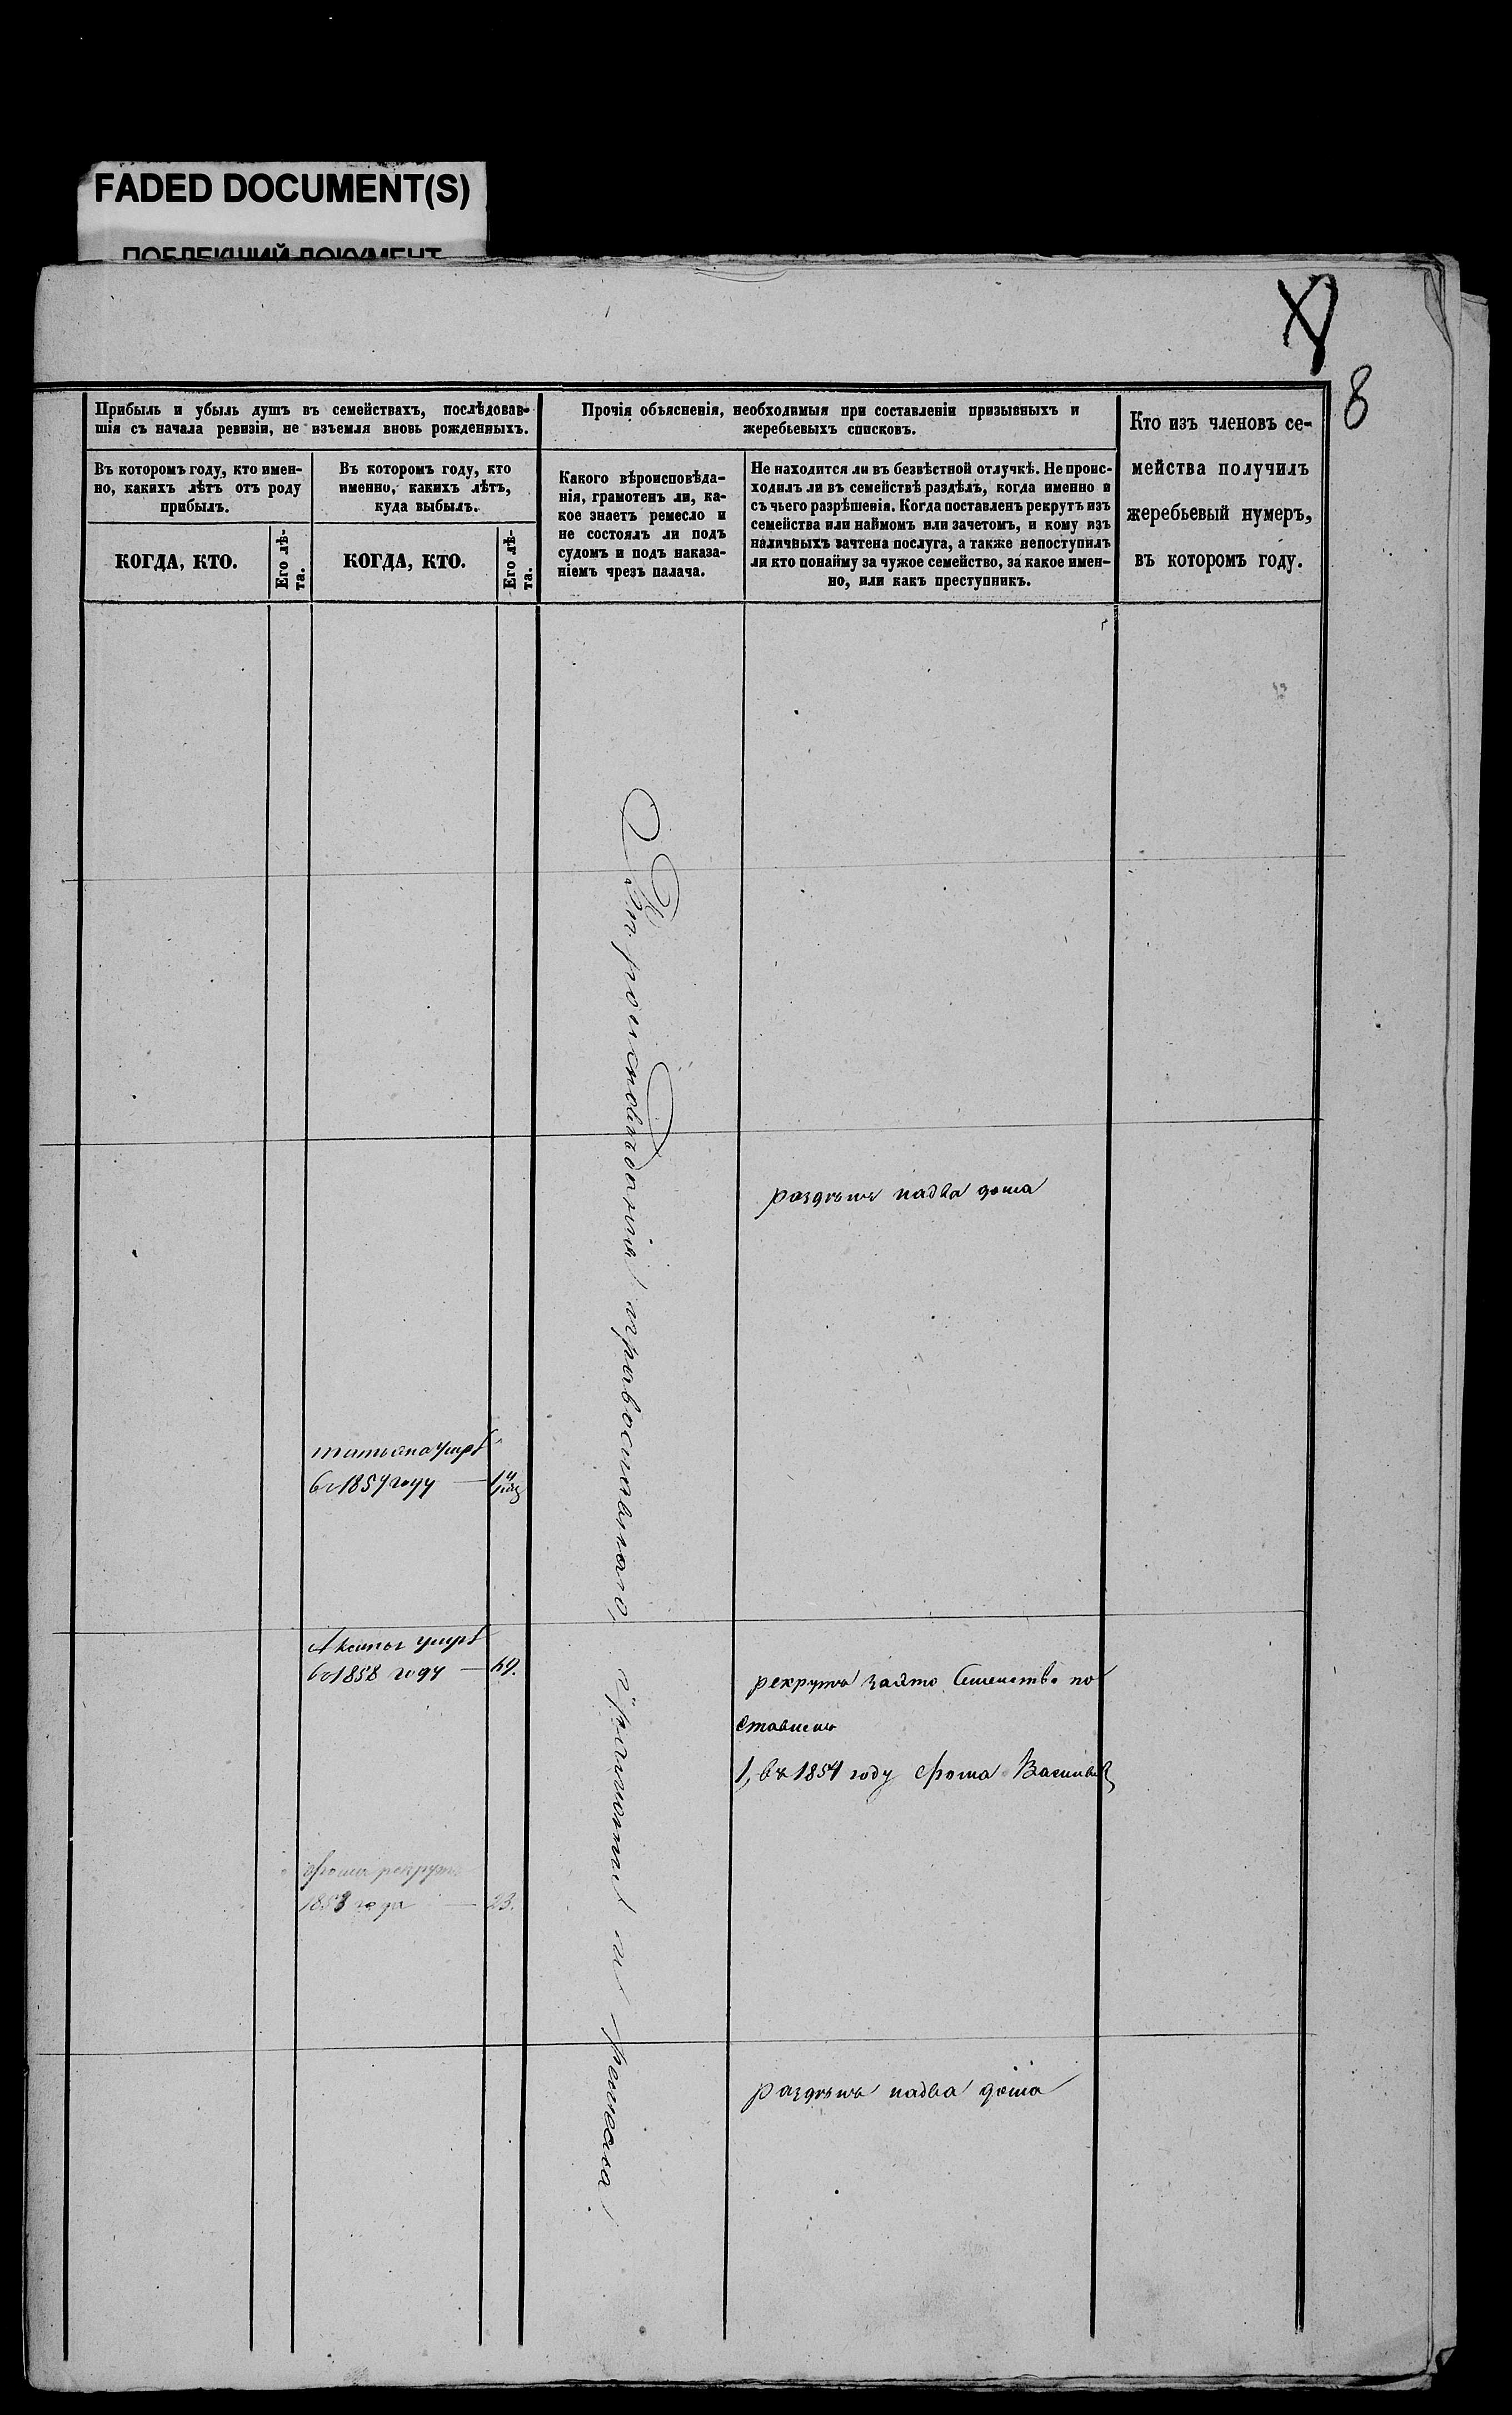 FADED DOCUMENT(S)
ПОБЛЕКШИЙ ДОКУМЕНТ
8
Прибыль и убыль душъ въ семействахъ, послѣдовав-
шія съ начала ревизіи, не изъемля вновь рожденныхъ.
Въ которомъ году, кто имен-
но, какихъ лѣтъ отъ роду
прибылъ.
КОГДА, КТО.
Его лѣ-
та.
Въ которомъ году, кто
именно, какихъ лѣтъ,
куда выбылъ.
КОГДА, КТО.
Его лѣ-
та.
Прочія объясненія, необходимыя при составленіи призывныхъ и
жеребьевыхъ списковъ.
Какого вѣроисповѣда-
нія, грамотенъ ли, ка-
кое знаетъ ремесло и
не состоялъ ли подъ
судомъ и подъ наказа-
ніемъ чрезъ палача.
Не находится ли въ безвѣстной отлучкѣ. Не проис-
ходилъ ли въ семействѣ раздѣлъ, когда именно и
съ чьего разрѣшенія. Когда поставленъ рекрутъ изъ
семейства или наймомъ или зачетомъ, и кому изъ
наличныхъ зачтена послуга, а также непоступилъ
ли кто понайму за чужое семейство, за какое имен-
но, или какъ преступникъ.
Кто изъ членовъ се-
мейства получилъ
жеребьевый нумеръ,
въ которомъ году.
Вѣроисповѣданія православнаго, грамоты и ремесла
раздѣлъ надва дома
въ 1857 году
умеръ
въ 1858 году — 49.
рекрутъ Семейство по
ставленъ
1, въ 1854 году Фома Васильев
Фома рекрут
1853 года — 23.
раздѣлъ надва дома